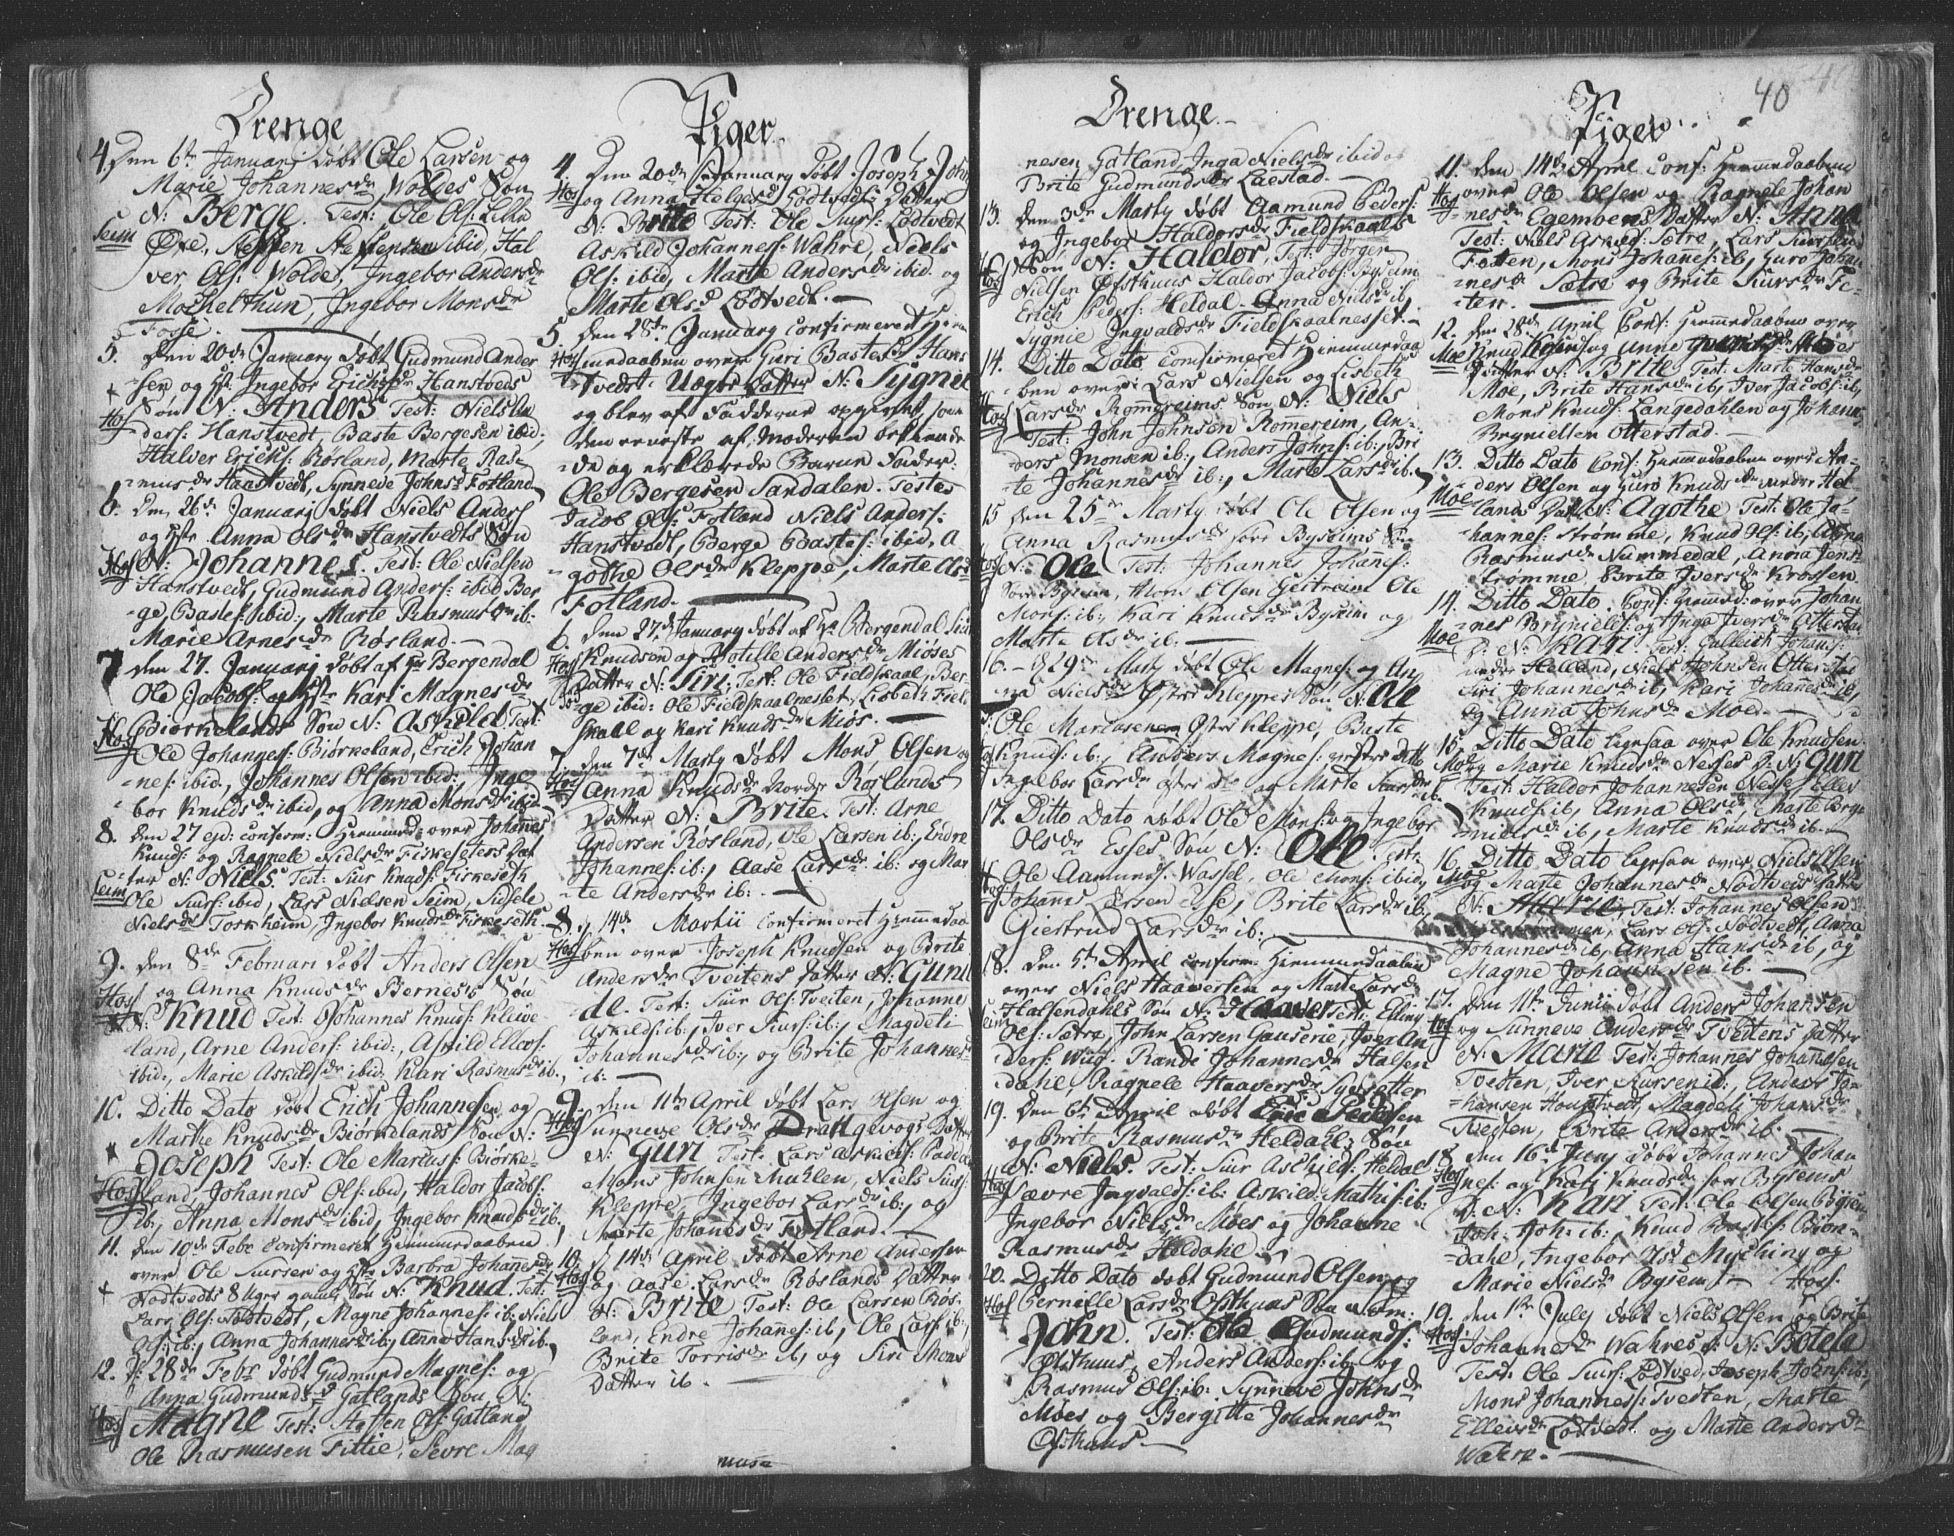 Drenge
4. Den 6te January døbt Ole Larsen og
Marie Johannesdr Wolges Søn
N: Berge. Test: Ole Ols: Lilla
Seim
Øre, Steffen Steffensen ibid, Hal
ver Ols: Wolde, Ingebor Andersdr
Mochelthun, Ingebor Monsdr
Fosse.
5. Den 20de January døbt Gudmund Ander
sen og Ingebor Erichsdr Hanstveds
Søn N: Anders Test: Niels An
Hos
ders: Hanstvedt, Baste Bergesen ibid,
Halver Erichs: Røsland, Marte Ras-
musdr Haastvedt, Synneve Johnsd Fotland
6. Den 26de January døbt Niels Anders
og Anna Olsdr Hanstvedts Søn
Hos N: Johannes. Test: Ole Nielsen
Hanstvedt, Gudmund Anders: ibid Ber
ge, Bastes: ibid:, Marte Rasmusdr ib:
Marie Arnesdr Røsland.
7 Den 27. January døbt af Bergendal
Ole Jacobs: og Kari Magnesdr
Hos Biørkelands Søn N: Askild Test:
Ole Johannes: Biørkeland, Erich Johan
nes: ibid, Johannes Olsen ibid: Inge
bor Knudsdr ibid, og Anna Monsdr ibid
8. Den 27 ejd: confirm: Hiemmed: over Johannes
Knuds: og Ragnele Nielsdr Firkeseters Dat
ter N: Niels. Test: Siur Knuds: Firkeseth
Seim
Ole Siurs: ibid, Lars Nielsen Seim, Sidsele
Nielsdr Torkheim, Ingebor Knudsdr Firkeseth
9. Den 8de Februari døbt Anders Olsen
og Anna Knudsdr Bernes's Søn
Hos N: Knud Test: Johannes Knuds: Kleve-
land, Arne Anders: ibid:, Askild Ellefs:
ibid:, Marie Askildsdr ibid, Kari Rasmusdr ib:
10. Ditto Dato døbt Erich Johannesen og
Marthe Knudsdr Biørkelands Søn N:
Joseph Test: Ole Marcus: Biørke-
Hos land, Johannes Ols: ibid, Haldor Jacobs:
ib:, Anna Monsdr ibid, Ingebor Knudsdr ib:
11. Den 10de Febr confirmeret Hiemmedaaben
over Ole Siursen og Barbra Johannesdr
Nødtvedts 8 Uger gamle Søn N: Knud. Test:
Lars Ols: Nødtvedt, Magne Johannes: ib: Niels
Ols: ib:, Anna Johannesdr ib:, Anna Hansdr ib:
12. D: 28de Febr døbt Gudmund Magnes: og
Anna Gudmundsd Gatlands Søn N:
Hos Magne Test: Ols: Gatland
Ole Rasmusen Tittie, Sevre Mag
Piger
4. Den 20de January døbt Joseph Johs
Hos og Anna Helgesd Lødtvedts Datter
N: Brite Test: Ole Siurs: Lødtvedt
Askild Johannes: Wahre, Niels
Ols: ibid, Marte Andersdr ibid. og
Marte Olsd Lødtvedt.
5. Den 28de January confirmeret Hiem
Hos medaaben over Guri Bastesdr Hans
tvedt Uægte Datter N: Sygnie
og blev af Fadderne opgivet, som
den eeneste af Moderen bekiende
de og erklærede Barne Fader:
Ole Bergesen Sandalen. Testes
Jacob Ols: Fotland Niels Anders:
Hanstvedt, Berge Bastes: ibid, A
gothe Olsdr Kleppe, Marte Olsd
Fotland.
6. Den 27de January døbt af Hr Bergendal Siur
Hos Knudsen og Botille Andersdr Mioses
Datter N: Siri, Test: Ole Fieldskaal, Ber
ge ibid: Ole Fieldskaalnesset, Lisbeth Field
skaal og Kari Knudsdr Miøs.
7. Den 7de Marty døbt Mons Olsen og
Hos Anna Knudsdr Nordre Røslands
Datter N: Brite. Test: Arne
Andersen Røsland, Ole Larsen ib:, Endre
Johannes: ib:, Aase Larsdr ib: og Mar
te Andersdr ib:
8. D 14de Martii confirmeret Hiemmedaa
Hos ben over Joseph Knudsen og Brite
Andersdr Tveitens Datter N: Gunil
de. Test: Siur Ols: Tveiten, Johannes
Askilds: ib:, Iver Siurs: ib:, Magdeli
Johannesdr ib:, og Brite Johannesdr
ib:
9. Den 11te April døbt Lars Olsen og
Hos Sunneve Olsdr Drangevogs Datter
N: Guri Test: Lars Askilds:
Mons Johnsen Muhlen, Niels Siurs:
Kleppe, Ingebor Larsdr ib:, og
Marte Johansdr Fotland.
10. D 14de April døbt Arne Andersen
Hos og Aase Larsdr Røslands Datter
N: Brite Test: Ole Larsen Røs-
land, Endre Johannes: ib, Ole Lars: ib:,
Brite Torrisdr ib, og Siri Mons
Datter ib.
Drenge
nesen Gatland, Inga Nielsdr ibid og
Brite Gudmundsdr Laestad.
13. Den 3de Marty døbt Aamund Peders:
og Ingebor Haldorsdr Fieldskaals
Hos Søn N: Haldor, Test: Jørgen
Nielsen Østhuus Haldor Jacobs: Byseim
Erich Peders: Heldal. Anna Nielsdr ib,
Sygnie Ingvaldsdr Fieldskaalnesset.
14. Ditto Dato confirmeret Hiemmedaa
ben over Lars Nielsen og Lisbeth
Hos Larsdr Rommereims Søn N: Niels
Test: John Johnsen Romereim, An-
ders Monsen ib:, Anders Johns: ib:, Bri
te Johannesdr ib:, Marte Larsdr ib:
15 Den 25de Marty døbt Ole Olsen og
Anna Rasmusdr søre Byseims Søn
Hos N: Ole Test: Johannes Johannes:
Søre Byseim, Mons Olsen Giestreim Ole
Mons: ib:, Kari Knudsdr Byseim og
Marte Olsdr ib.
16. D 29de Marty døbt Ole Magnes: og An
na Nielsdr Øster Kleppes Søn N: Ole
Ole Marcusen Øster Kleppe, Baste
Knuds: ib:, Anders Magnes: vester ditto
Ingebor Larsdr øster do og Marte Siursdr ib.
17. Ditto Dato døbt Ole Mons: og Ingebor
Olsdr Esses Søn N: Ole Test:
Hos Ole Aamunds: Wassel, Ole Mons: ibid,
Johannes Larsen Esse, Brite Larsdr ib:,
Giertrud Larsdr ib:
18. Den 5te April confirm: Hiemmedaaben
over Niels Haaversen og Marte Larsdr
Seim Halsendahls Søn N: Haaver Test: Elling
Ols: Sætre, John Larsen Gauserie, Iver An
ders: Wiig. Randi Johannesdr Halsen
dahl Ragnele Haaversdr Sydsætter
19. Den 6te April døbt Eric Pedersen
og Brite Rasmusdr Heldahls Søn
Hos N: Niels. Test: Siur Askilds: Heldal
Sævre Ingvalds: ib: Askild Mathis: ib:
Ingebor Nielsdr Moes og Johanne
Rasmusdr Heldahl.
20. Ditto Dato døbt Gudmund Olsen og
Hos Pernille Larsdr Østhuus Søn
John. Test: Ole Gudmunds:
Østhuus, Anders Anders: ib: og
Rasmus Ols: ib: Synneve Johnsdr
Moes og Bergitte Johannesdr
Østhuus
40
Piger
11. Den 14de April conf: Hiemmedaaben
Hos over Ole Olsen og Ragnele Johan
nesdr Egembens Datter N: Anna
Test: Niels Askeds: Sætre, Lars Siursen
Fotten, Mons Johanes: ib, Guro Johan
nesdr Sætre og Brite Siursdr Te-
iten.
12. Den 28de April Conf: Hiemmedaaben over
Moe Knud og Anne Moes
Datter N: Brite Test: Marte Hansdr
Moe, Brite Hansdr ib, Iver Jacobs: ib,
Mons Knuds: Langedahlen og Johann:
Bryniellsen Otterstad.
13. Ditto Dato Conf: Hiemmedaaben over An-
ders Olsen og Guro Knudsdr under Hel
Moe lands Datter N: Agothe Test: Ole Jo-
hannes: Strømme, Knud Ols: ib, Anna
Rasmusdr Nummedal, Anna Jens
Strømme, Brite Iversdr Krossen
14. Ditto Dato. Conf: Hiemmed: over Johan
nes Brynields: og Inga Iversdr Otterstad
Moe D: N: Kari Test: Johannes:
under Helland, Niels Johnsen Otterstad
Siri Johannesdr ib, Kari Johannesdr ib,
og Anna Johnsdr Moe.
15. Ditto Dato ligesaa over Ole Knudsen
Moe og Marie Knudsdr Nesses D: N: Guri
Test: Haldor Johannesen Nesse, Ellev
Knuds: ib, Anna Olsdr Marte Bryn-
nielsdr ib, Marte Knudsdr ib.
16. Ditto Dato ligesaa over Niels Olsen
Moe og Marte Johannesdr Nødtveds Datter
N: Marie, Test: Johannes Olsen
Lars Ols: Nødtvedt, Anna
Johannesdr ib, Anna Hansdr ib, og
Magne Johannesen ib.
17. Den 11te Junii døbt Anders Johansen
Hos og Sunneve Andersdr Tvetens Datter
N: Marie Test: Johannes Johannesen
Tvesten, Iver Siursen ib:, Anders Jo-
hansen Haustvedt, Magdeli Johansdr
Tvesten, Brite Andersdr ib.
18 Den 16de Juny døbt Johannes Johan
Hos nes: og Kari Knudsdr søre Bysems
D: N: Kari Test: Ole Olsen Bysem
Joh: Joh: ib: Knud Biørn-
dahl, Ingebor Mychling og
Marie Nielsdr Bysems
Hos.
19. Den 1te July døbt Niels Olsen og Brite
Hos. Johannesdr Wahres D: N: Botela
Test: Ole Siurs: Lødtved, Joseph Johns: ib:
Mons Johannes: Tvesten, Marte
Ellevsdr Lødtved og Marte Andersdr
Wahre.